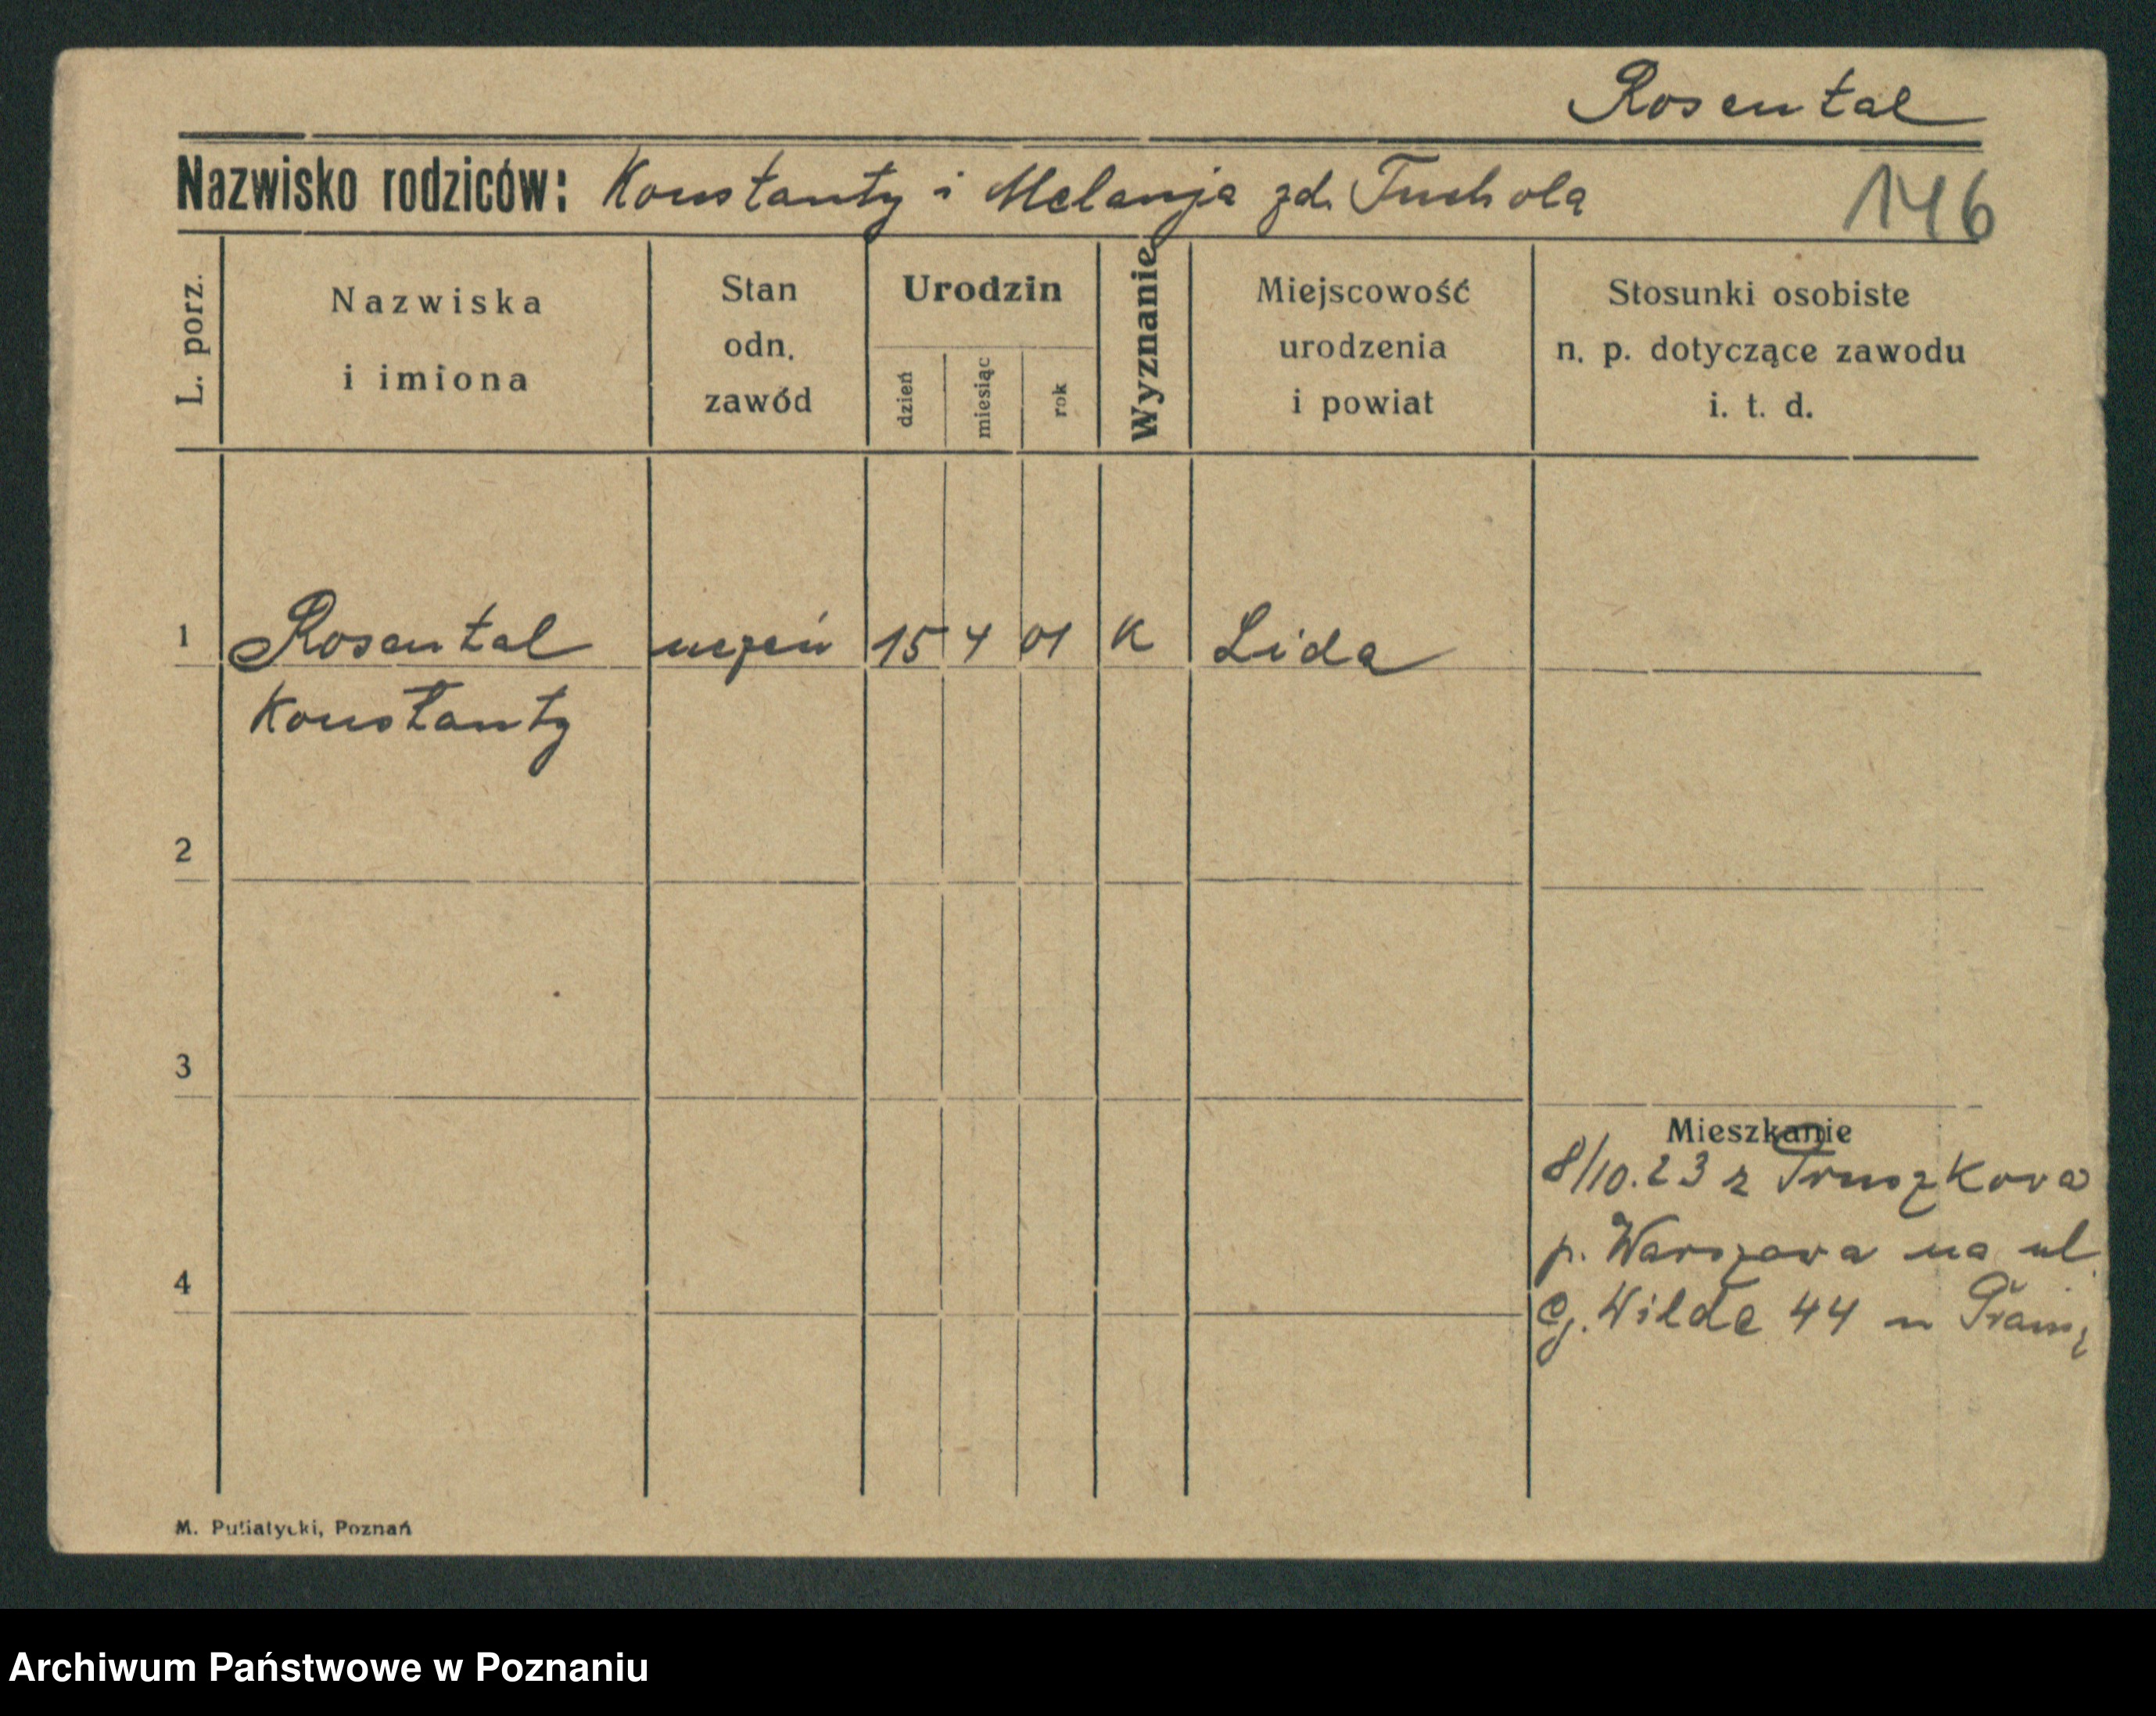 Rosental
Nazwisko rodziców: Konstanty i Melanja zd. Tuchola
146
L. porz.
Nazwiska
i imiona
Stan
odn.
zawód
Urodzin
dzień
miesiąc
rok
Wyznanie
Miejscowość
urodzenia
i powiat
Stosunki osobiste
n. p. dotyczące zawodu
i. t. d.
1 Rosental uczeń 15 4 01 K Lida
Konstanty
2
3
Mieszkanie
8/10.23 z Pruszkowa
p. Warszawa na ul.
4
G. Wilda 44 u
M. Putiatycki, Poznań
Archiwum Państwowe w Poznaniu